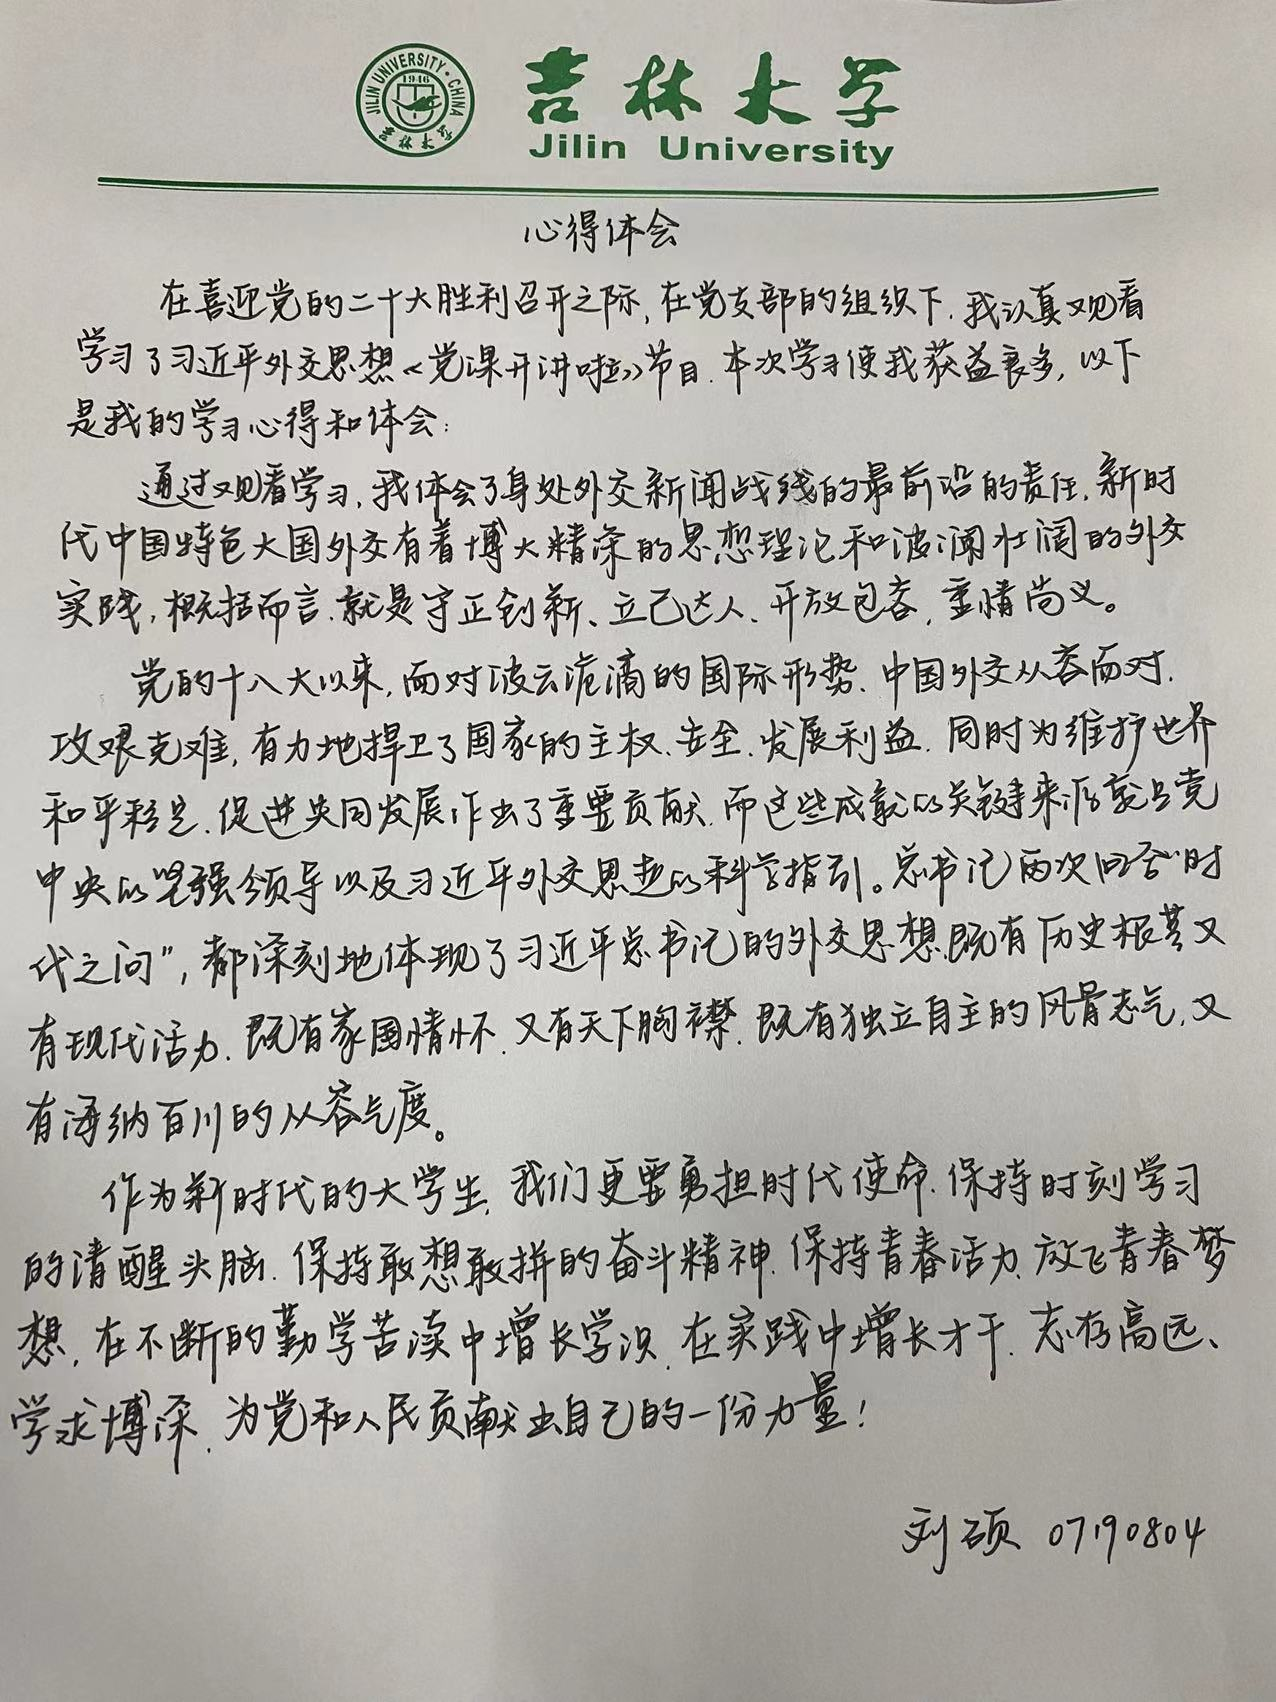 JILIN UNIVERSITY · CHINA
1946
吉林大学
吉林大学
Jilin University
心得体会
在喜迎党的二十大胜利召开之际,在党支部的组织下,我认真观看
学习了习近平外交思想《党课开讲啦》节目,本次学习使我获益良多,以下
是我的学习心得和体会:
通过观看学习,我体会了身处外交新闻战线的最前沿的责任,新时
代中国特色大国外交有着博大精深的思想理论和波澜壮阔的外交
实践,概括而言,就是守正创新、立己达人、开放包容,重情尚义。
党的十八大以来,面对波云诡谲的国际形势,中国外交从容面对,
攻艰克难,有力地捍卫了国家的主权、安全、发展利益,同时为维护世界
和平稳定、促进共同发展作出了重要贡献,而这些成就的关键来源就是党
中央的坚强领导以及习近平外交思想的科学指引。总书记两次回答“时
代之问”,都深刻地体现了习近平总书记的外交思想,既有历史根基又
有现代活力,既有家国情怀,又有天下胸襟,既有独立自主的风骨志气,又
有海纳百川的从容气度。
作为新时代的大学生,我们更要勇担时代使命,保持时刻学习
的清醒头脑,保持敢想敢拼的奋斗精神,保持青春活力,放飞青春梦
想,在不断的勤学苦读中增长学识,在实践中增长才干,志存高远、
学求博深,为党和人民贡献出自己的一份力量!
刘硕 07190804